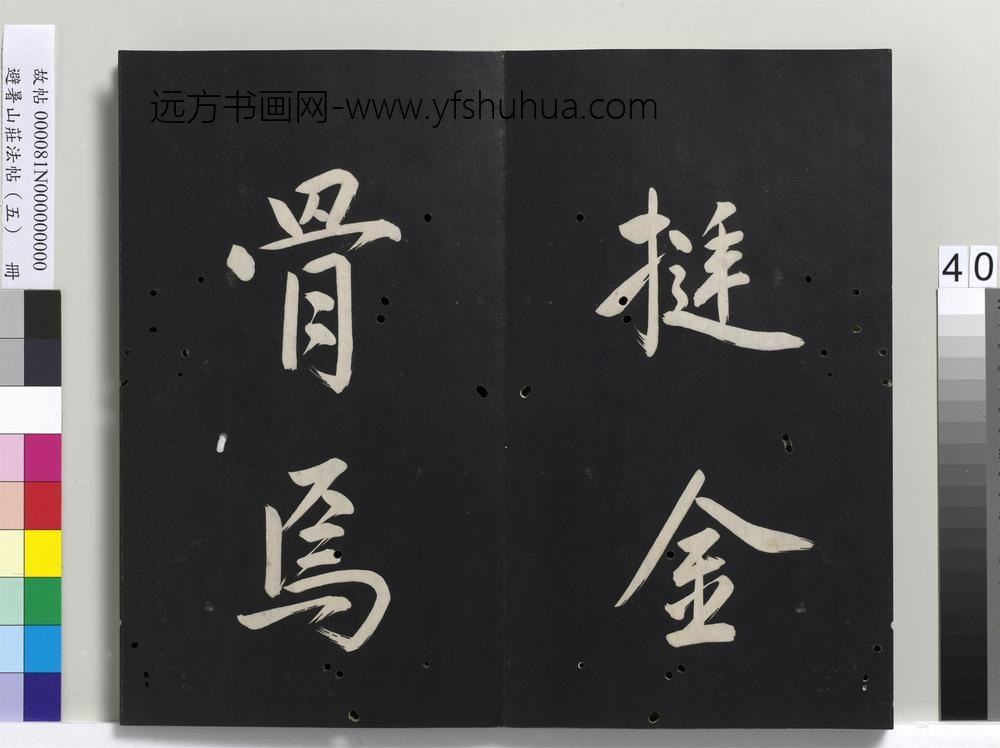 远方书画网-www.yfshuhua.com
挺金
骨焉
故帖 000081N000000000
避暑山莊法帖（五） 冊
40